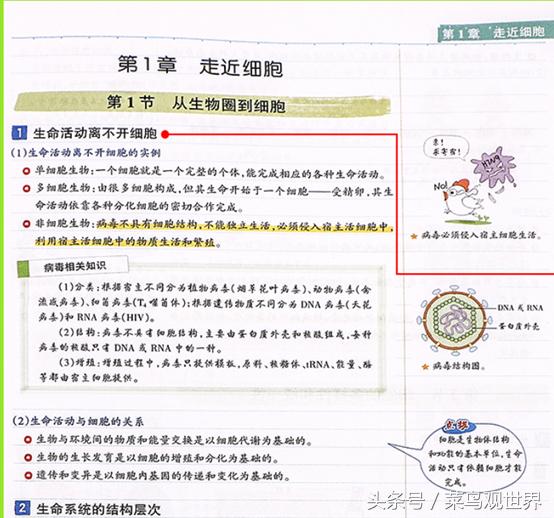 第1章 走近细胞
第1章 走近细胞
第1节 从生物圈到细胞
1 生命活动离不开细胞
(1)生命活动离不开细胞的实例
单细胞生物:一个细胞就是一个完整的个体,能完成相应的各种生命活动。
多细胞生物:由很多细胞构成,但其生命开始于一个细胞——受精卵,其生
命活动依靠各种分化细胞的密切合作完成。
非细胞生物:病毒不具有细胞结构,不能独立生活,必须侵入宿主活细胞中,
利用宿主活细胞中的物质生活和繁殖。
来!
亲密密!
HIV
No!
★ 病毒必须侵入宿主细胞生活。
病毒相关知识
(1)分类:根据宿主不同分为植物病毒(烟草花叶病毒)、动物病毒(禽
流感病毒)、细菌病毒(T₂噬菌体);根据遗传物质不同分为DNA病毒(天花
病毒)和RNA病毒(HIV)。
(2)结构:病毒不具有细胞结构,主要由蛋白质外壳和核酸组成,每种
病毒的核酸只有DNA或RNA中的一种。
(3)增殖:增殖过程中,病毒只提供模板,原料、核糖体、tRNA、能量、酶
等都由宿主细胞提供。
DNA或RNA
蛋白质外壳
★ 病毒结构图。
(2)生命活动与细胞的关系
生物与环境间的物质和能量交换是以细胞代谢为基础的。
生物的生长发育是以细胞的增殖和分化为基础的。
遗传和变异是以细胞内基因的传递和变化为基础的。
点拨
细胞是生物体结构
和功能的基本单位,生命
活动只有依赖细胞才能
完成。
2 生命系统的结构层次
头条号 / 菜鸟观世界